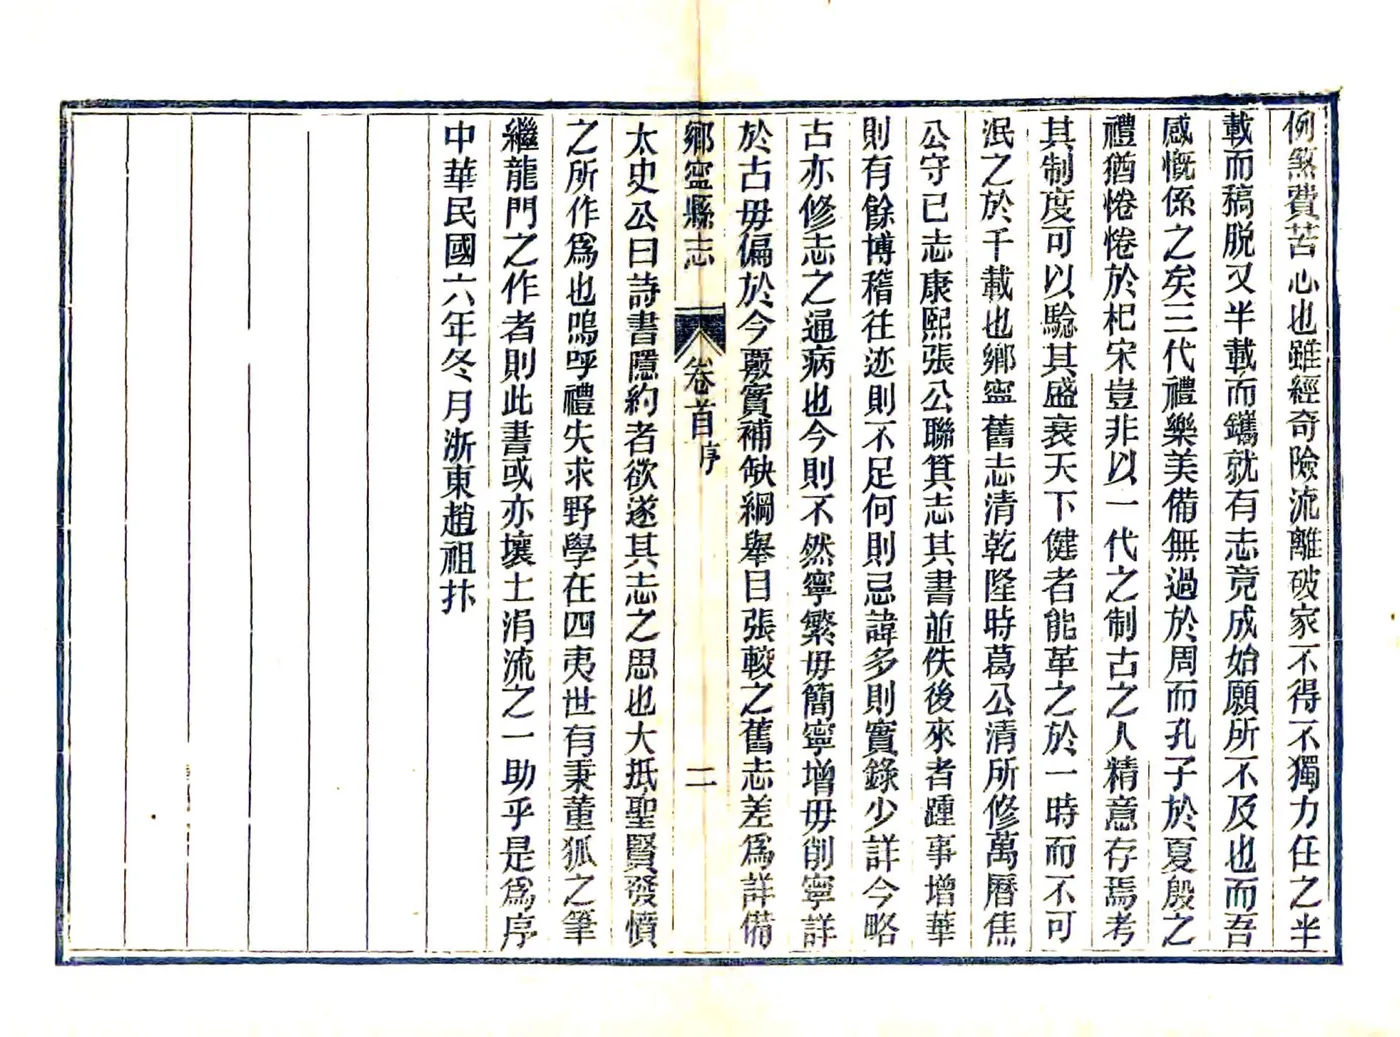 例煞費苦心也雖經奇險流離破家不得不獨力任之半
載而稿脱又半載而鐫就有志竟成始願所不及也而吾
感慨係之矣三代禮樂美備無過於周而孔子於夏殷之
禮猶惓惓於杞宋豈非以一代之制古之人精意存焉考
其制度可以騐其盛衰天下健者能革之於一時而不可
泯之於千載也鄉寧舊志清乾隆時葛公清所修萬曆焦
公守已志康熙張公聯箕志其書並佚後來者踵事增華
則有餘博稽往迹則不足何則忌諱多則實錄少詳今略
古亦修志之通病也今則不然寧繁毋簡寧增毋削寧詳
於古毋偏於今覈實補缺綱舉目張較之舊志差爲詳備
鄉寍縣志 卷首 序 二
太史公曰詩書隱約者欲遂其志之思也大抵聖賢發憤
之所作爲也嗚呼禮失求野學在四夷世有秉董狐之筆
繼龍門之作者則此書或亦壤土涓流之一助乎是爲序
中華民國六年冬月浙東趙祖抃